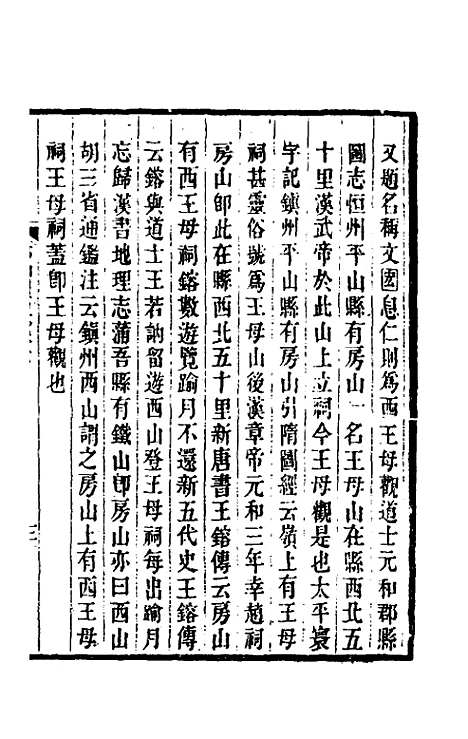 又題名稱文國息仁則為西王母觀道士元和郡縣
國志恒州平山縣有房山一名王母山在縣西北五
十里漢武帝於此山上立祠今王母觀是也太平寰
宇記鎮州平山縣有房山引隋圖經云嶺上有王母
祠甚靈俗號為王母山後漢章帝元和三年幸趙祠
房山卽此在縣西北五十里新唐書王鎔傳云房山
有西王母祠鎔數遊覽踰月不還新五代史王鎔傳
云鎔與道士王若訥留遊西山登王母祠每出踰月
忘歸漢書地理志蒲吾縣有鐵山卽房山亦曰西山
胡三省通鑑注云鎮州西山謂之房山上有西王母
祠王母祠蓋卽王母觀也